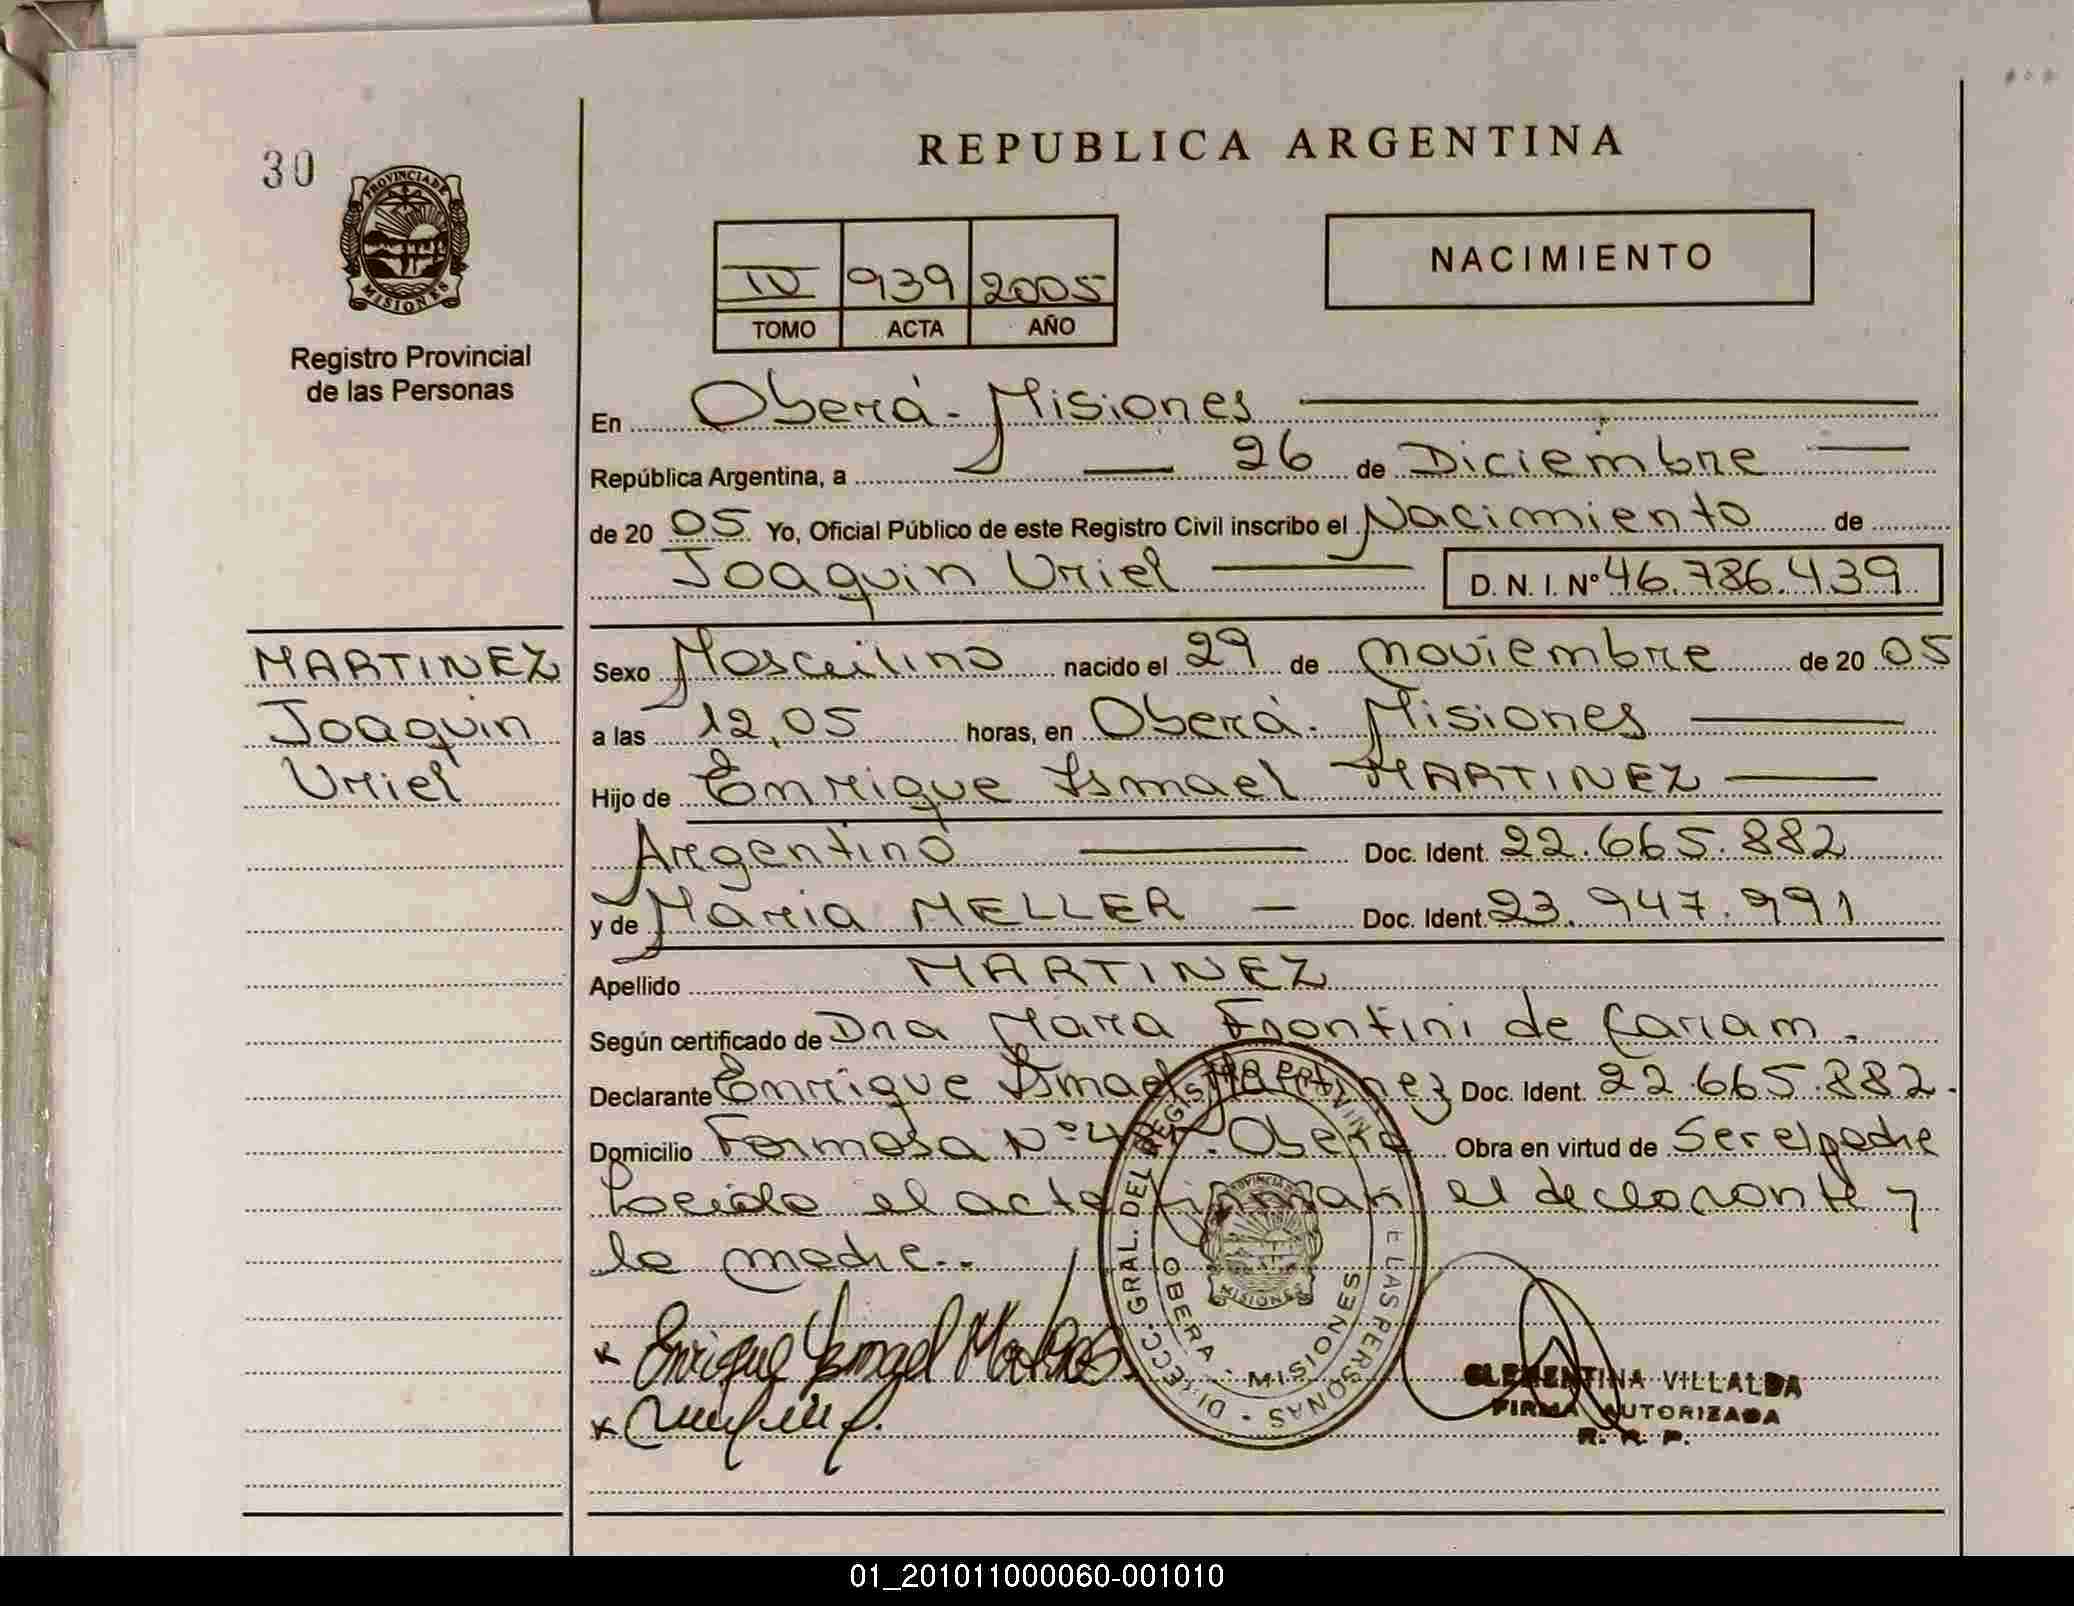 30
REPUBLICA ARGENTINA
PROVINCIA DE
MISIONES
Registro Provincial
de las Personas
IV 939 2005
TOMO ACTA AÑO
NACIMIENTO
En Oberá - Misiones
República Argentina, a 26 de Diciembre
de 20 05 Yo, Oficial Público de este Registro Civil inscribo el Nacimiento de
Joaquin Uriel D. N. I. Nº 46.786.439
MARTINEZ
Joaquin
Uriel
Sexo Masculino nacido el 29 de noviembre de 20 05
a las 12,05 horas, en Oberá - Misiones
Hijo de Enrique Ismael MARTINEZ
Argentino Doc. Ident. 22.665.882
y de Maria MELLER Doc. Ident. 23.947.991
Apellido MARTINEZ
Según certificado de Dra Mara Frontini de
Declarante Enrique Ismael Martinez Doc. Ident. 22.665.882.
Domicilio Formosa Nº Oberá Obra en virtud de Ser el padre
Leida el acta firman el declarante y
la madre..
Enrique Ismael Martinez
DIRECC. GRAL. DEL REGISTRO PROVIN DE LAS PERSONAS
OBERA - MISIONES
PROVINCIA DE
MISIONES
CLEMENTINA VILLALBA
FIRMA AUTORIZADA
R. R. P.
01_201011000060-001010